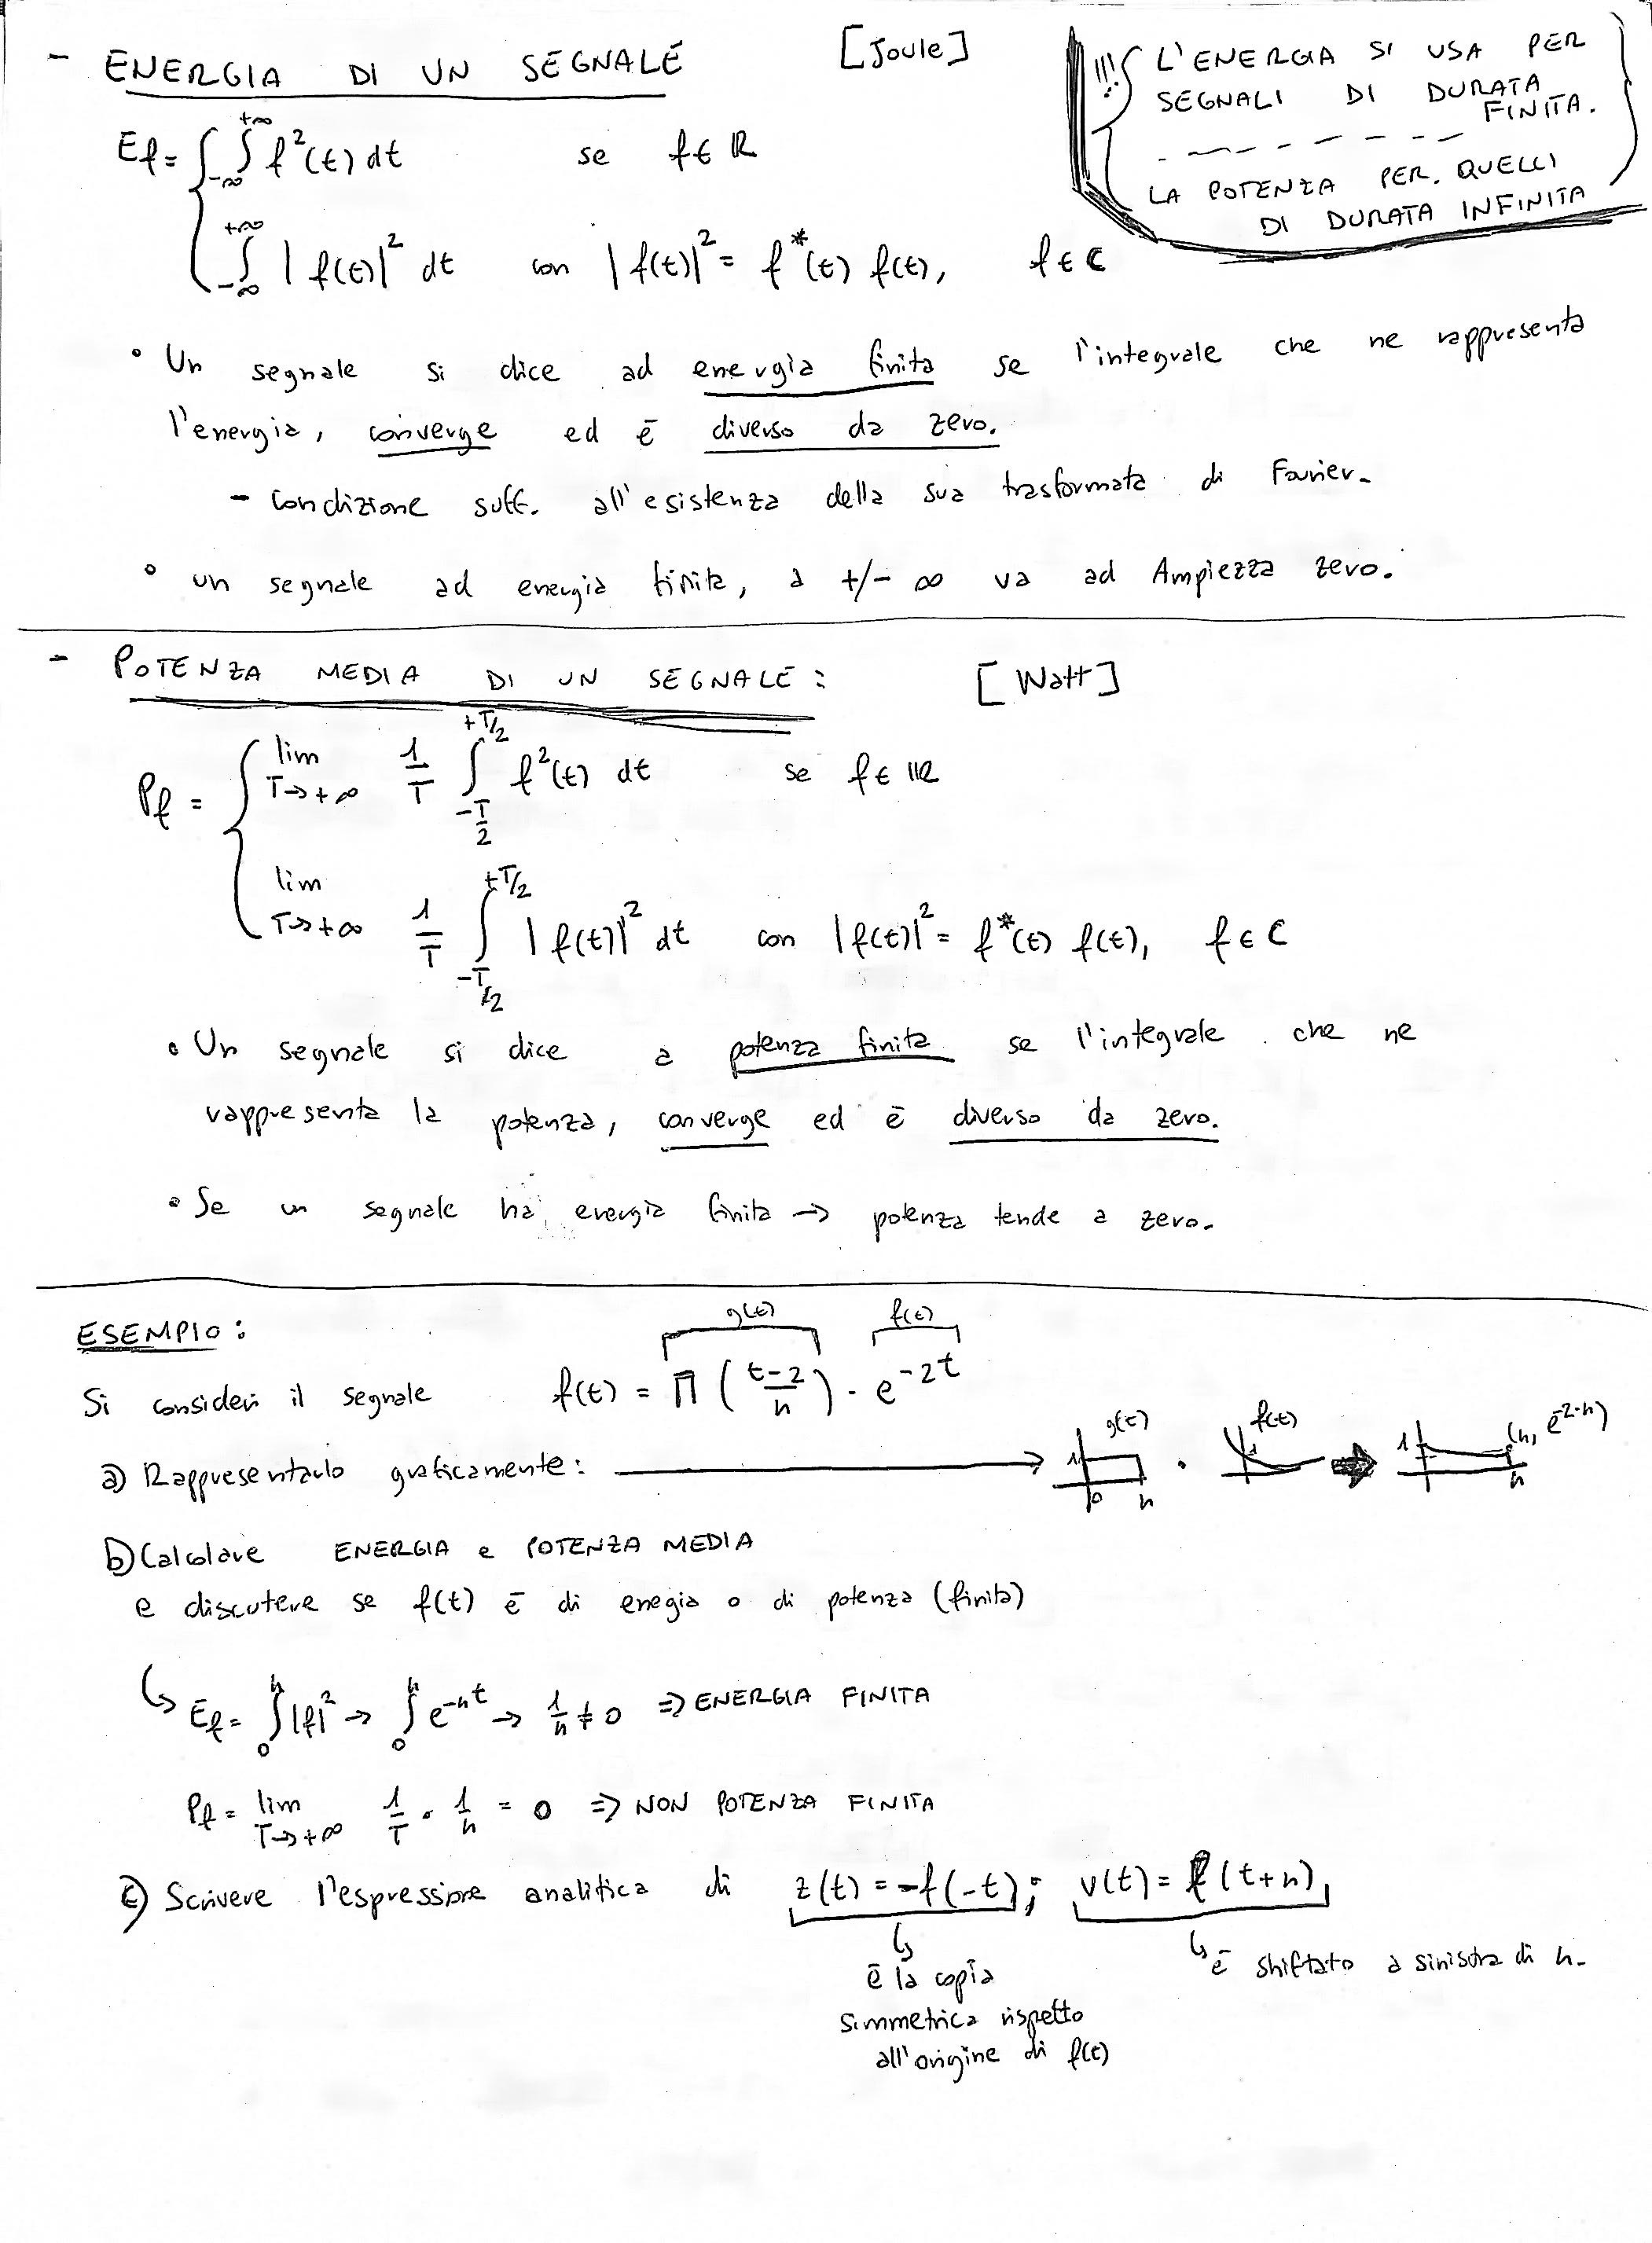 - ENERGIA DI UN SEGNALE [Joule]
!!! L'ENERGIA SI USA PER
SEGNALI DI DURATA
FINITA.
LA POTENZA PER. QUELLI
DI DURATA INFINITA
Ef = { ∫_{-∞}^{+∞} f²(t) dt se f ∈ ℝ
∫_{-∞}^{+∞} |f(t)|² dt con |f(t)|² = f*(t) f(t), f ∈ C
• Un segnale si dice ad energia finita se l'integrale che ne rappresenta
l'energia, converge ed è diverso da zero.
- condizione suff. all'esistenza della sua trasformata di Fourier.
• un segnale ad energia finita, a +/- ∞ va ad Ampiezza zero.
- POTENZA MEDIA DI UN SEGNALE: [Watt]
Pf = { lim_{T→+∞} 1/T ∫_{-T/2}^{+T/2} f²(t) dt se f ∈ ℝ
lim_{T→+∞} 1/T ∫_{-T/2}^{+T/2} |f(t)|² dt con |f(t)|² = f*(t) f(t), f ∈ C
• Un segnale si dice a potenza finita se l'integrale che ne
rappresenta la potenza, converge ed è diverso da zero.
• Se un segnale ha energia finita → potenza tende a zero.
ESEMPIO:
g(t) f(t)
Si consideri il segnale f(t) = Π((t-2)/4) · e^{-2t}
a) Rappresentarlo graficamente: → g(t) 1 0 4 · f(t) 1 → 1 (4, e^{-2·4}) 4
b) Calcolare ENERGIA e POTENZA MEDIA
e discutere se f(t) è di enegia o di potenza (finita)
↳ Ef = ∫_0^4 |f|² → ∫_0^4 e^{-4t} → 1/4 ≠ 0 ⇒ ENERGIA FINITA
Pf = lim_{T→+∞} 1/T · 1/4 = 0 ⇒ NON POTENZA FINITA
c) Scrivere l'espressione analitica di z(t) = -f(-t); v(t) = f(t+4)
↳ è la copia
simmetrica rispetto
all'origine di f(t)
↳ è shiftato a sinistra di 4.